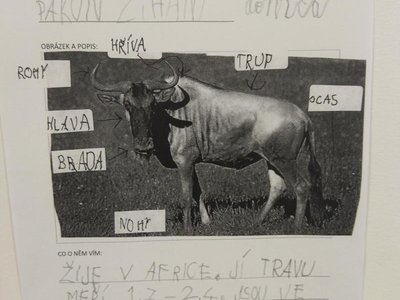 PAKŮŇ ŽÍHANÍ
OBRÁZEK A POPIS:
HŘÍVA
ROHY
TRUP
OCAS
HLAVA
BRADA
NOHY
CO O NĚM VÍM:
ŽIJE V AFRICE. JÍ TRAVU
MĚŘÍ 1,7 - 2,4. JSOU VE